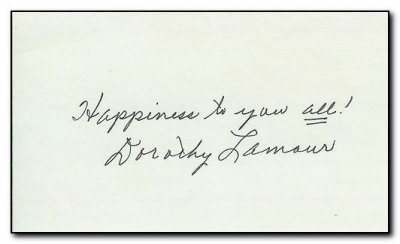 Happiness to you all!
Dorothy Lamour